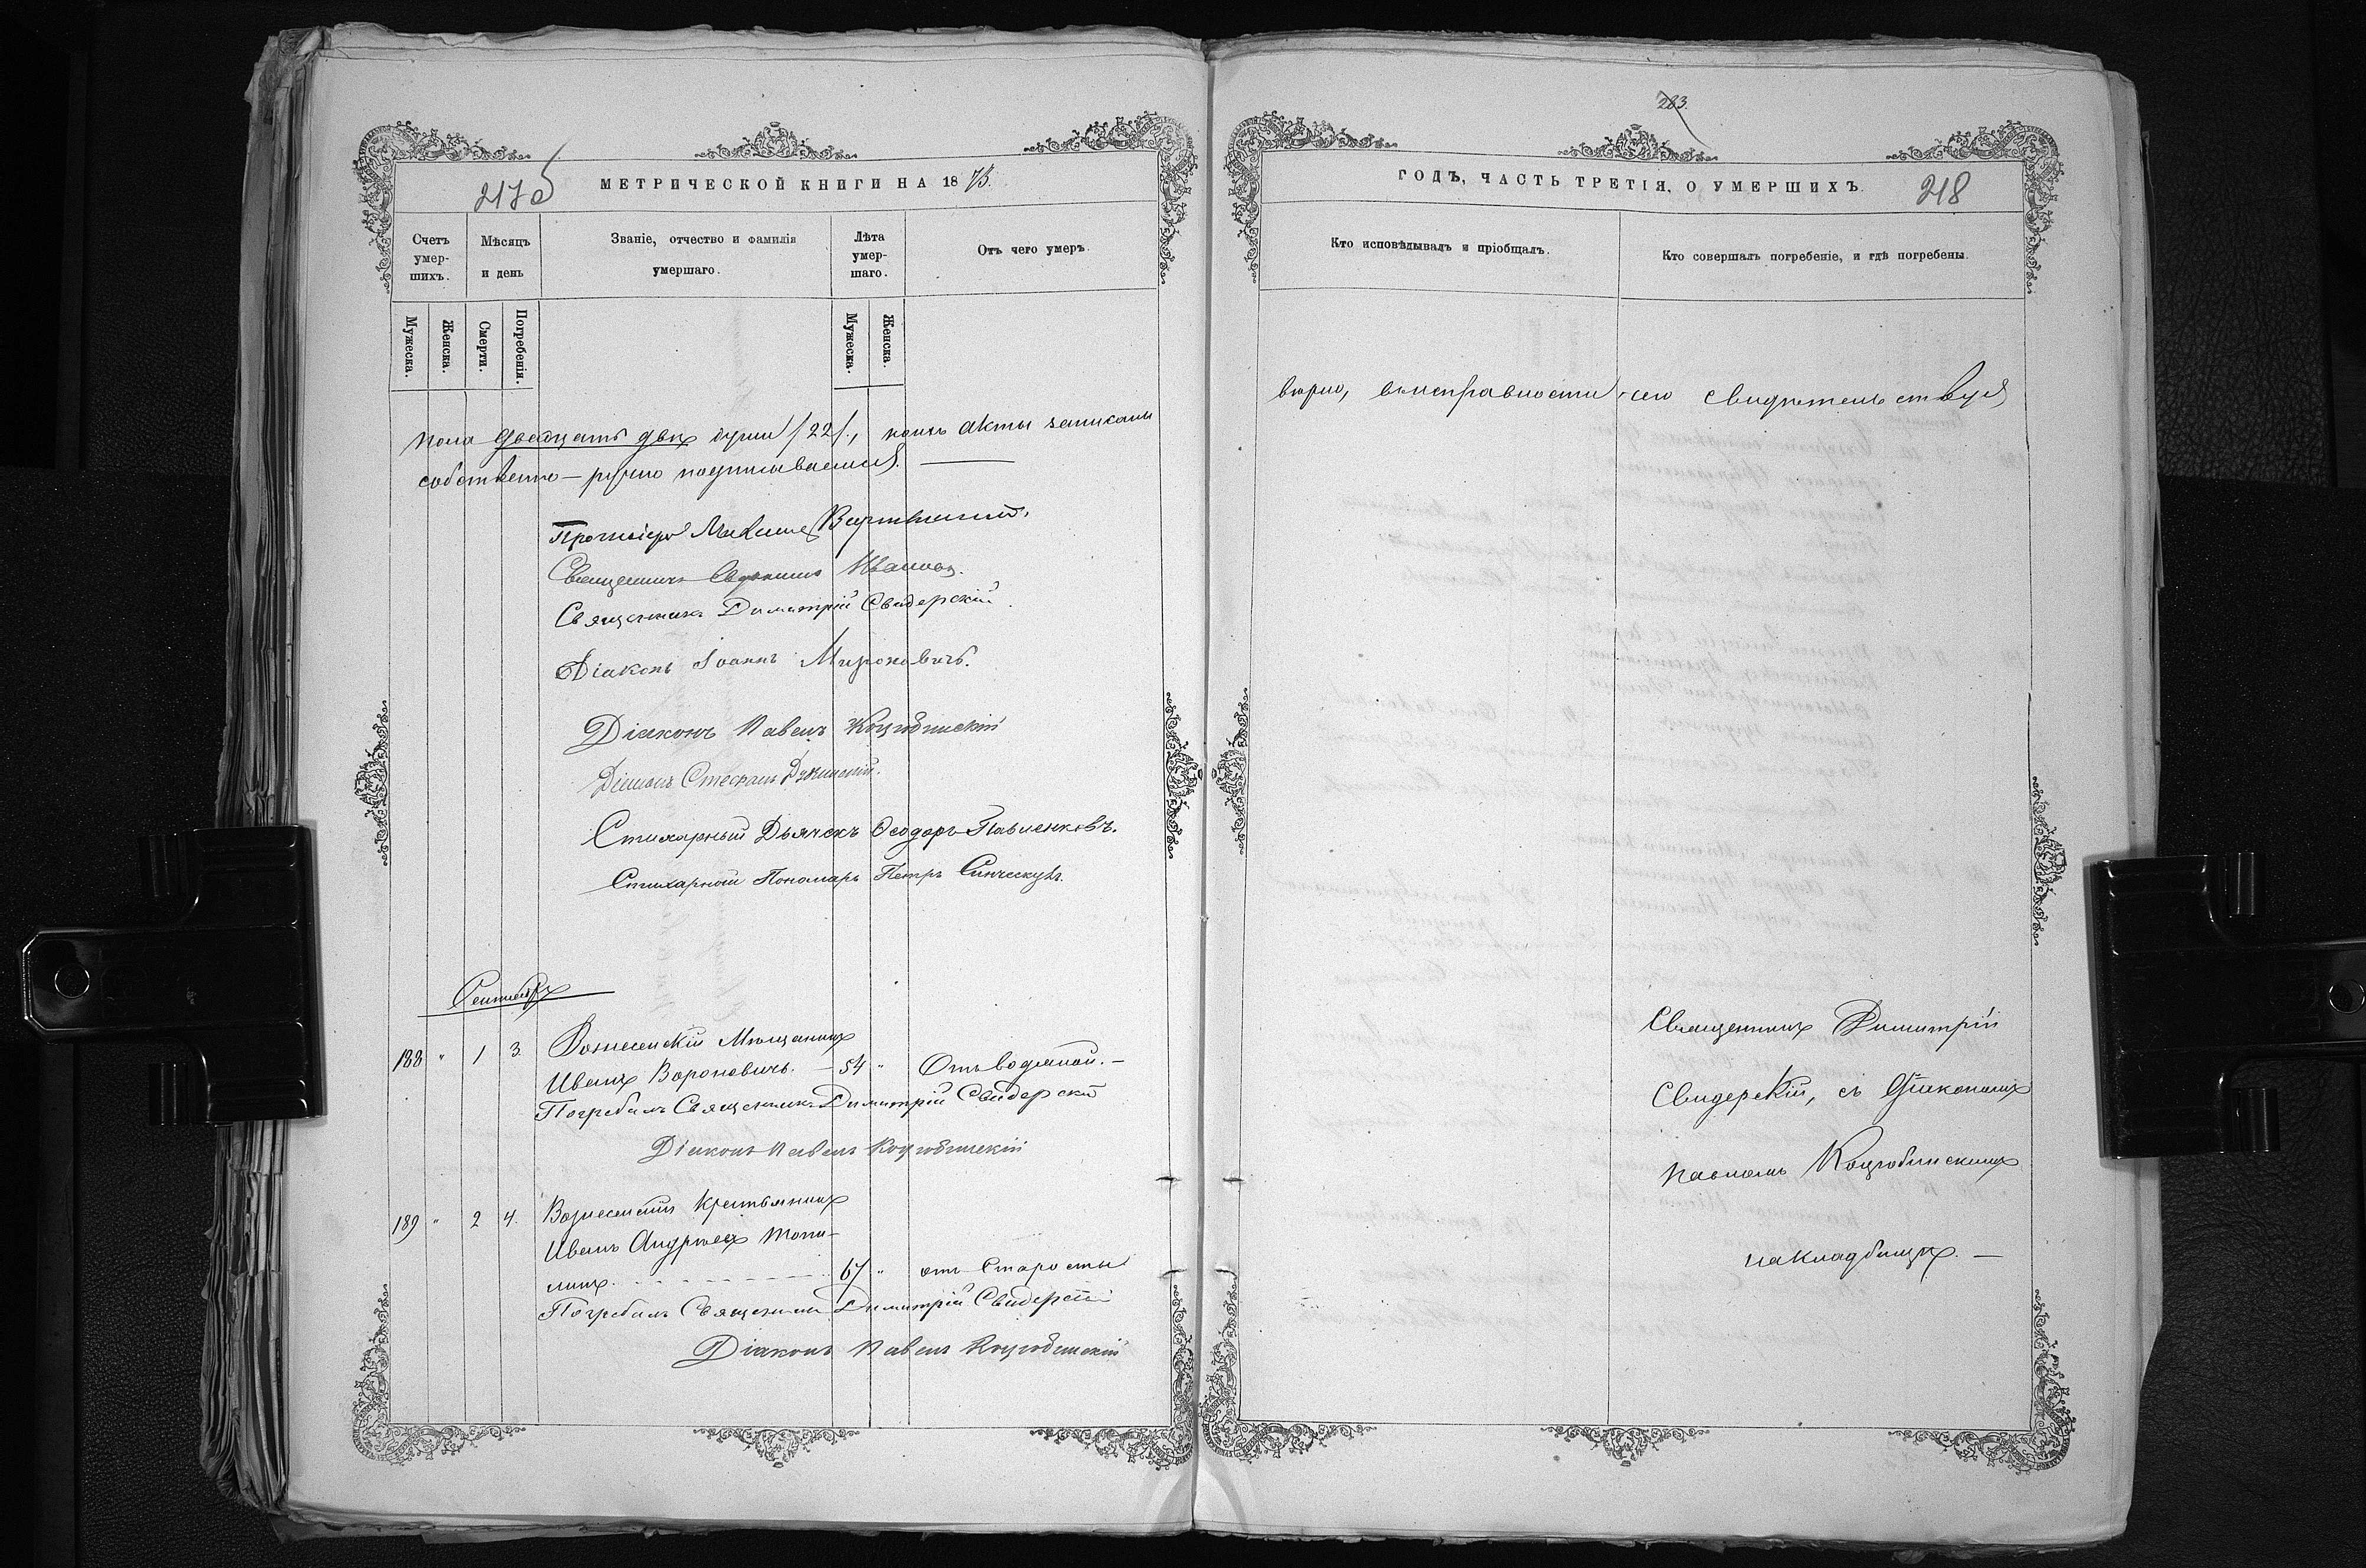 217 об
МЕТРИЧЕСКОЙ КНИГИ НА 1873.
Счетъ умер-шихъ.
Мѣсяцъ и день
Званіе, отчество и фамилія умершаго.
Лѣта умер-шаго.
Отъ чего умеръ.
Мужеска.
Женска.
Смерти.
Погребенія.
Мужеска.
Женска.
пола двадцать двѣ души /22/., коихъ акты записаны
собственно-ручно подписываемся. —
Протоіерей
Священникъ Иванов
Священникъ Димитрій Свидерскій.
Діаконъ Іоаннъ Мироновичъ.
Діаконъ Павелъ Коцюбинскій
Діаконъ Стефанъ
Стихарный Дьячекъ Ѳеодоръ Павленковъ.
Стихарный Пономарь Петръ
Сентябрь
188 " 1 3. Вознесенскій Мѣщанинъ
Иванъ Вороновичъ. — 54 " Отъ водяной. —
Погребалъ Священникъ Димитрій Свидерскій
Діаконъ Павелъ Коцюбинскій
189 " 2 4. Вознесенскій Крестьянинъ
Иванъ Андреевъ Топи-
линъ. 67 " отъ Старости
Погребалъ Священникъ Димитрій Свидерскій
Діаконъ Павелъ Коцюбинскій
283.
ГОДЪ, ЧАСТЬ ТРЕТІЯ, О УМЕРШИХЪ.
218
Кто исповѣдывалъ и пріобщалъ.
Кто совершалъ погребеніе, и гдѣ погребены.
вѣрно, въ исправности чего свидѣтельствуя
Священникъ Димитрій
Свидерскій, съ Діакономъ
Павломъ Коцюбинскимъ
на кладбищѣ. —